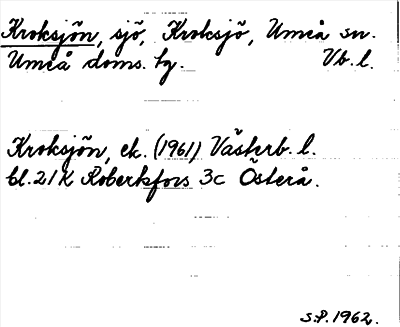 Kroksjön, sjö, Kroksjö, Umeå sn.
Umeå doms. tg. Vb. l.
Kroksjön, ek. (1961) Västerb. l.
bl. 21K Robertsfors 3c Österå.
S.P. 1962.